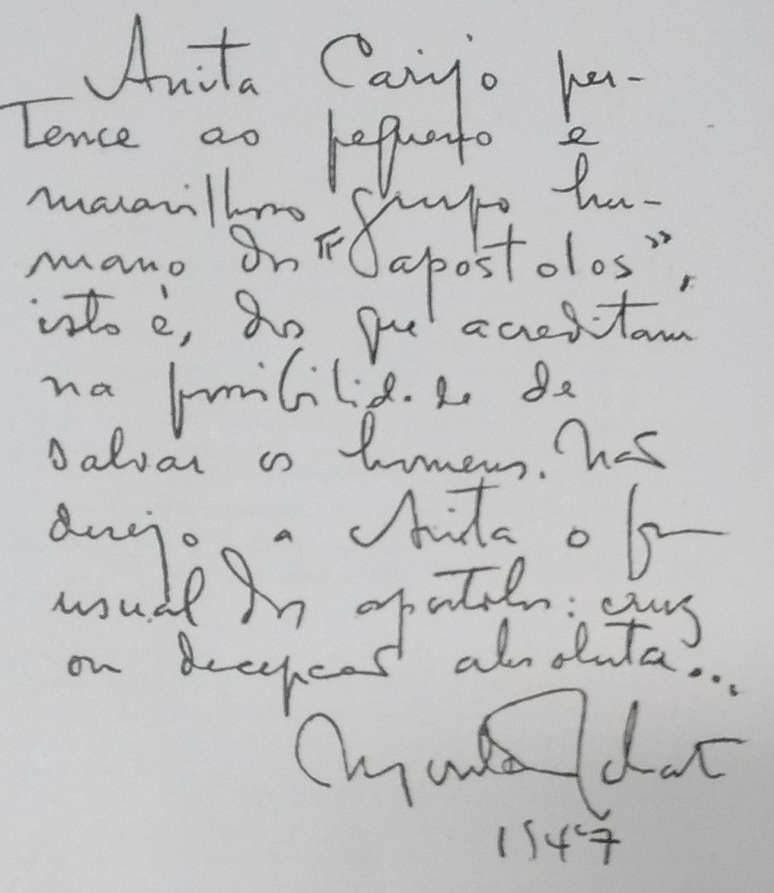 Anita Carijo per-
tence ao pequeno e
maravilhoso grupo hu-
mano dos "apostolos",
isto é, dos que acreditam
na possibilidade de
salvar os homens. Não
desejo a Anita o fim
usual dos apostolos: cruz
ou decepção absoluta...
1947